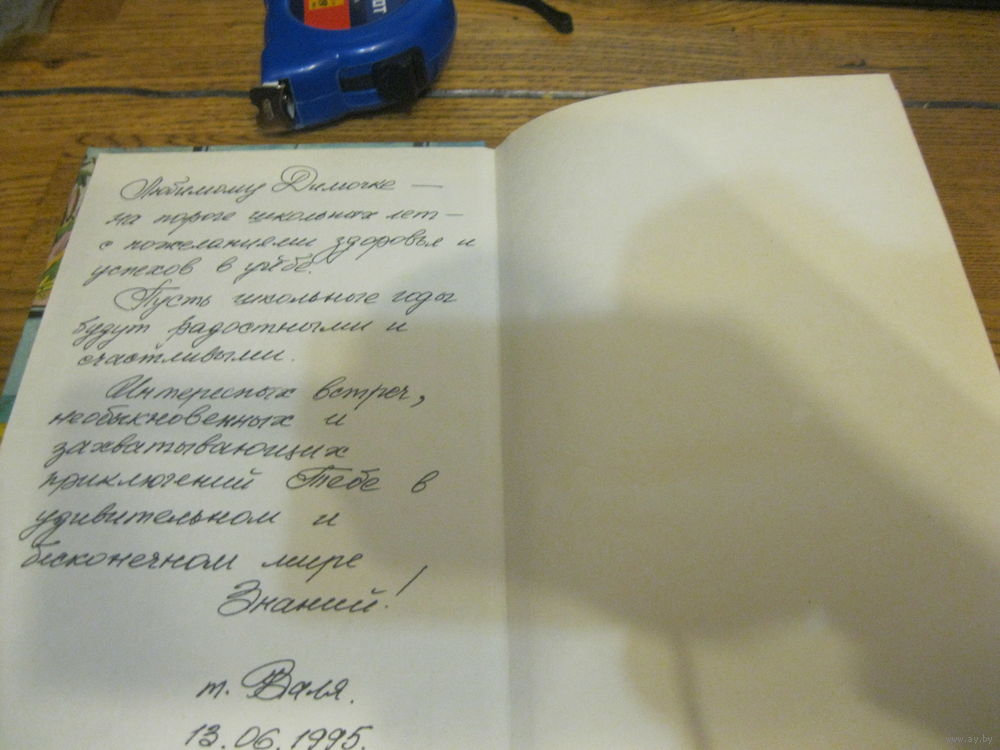 Любимому Димочке —
на пороге школьных лет —
с пожеланиями здоровья и
успехов в учёбе.
Пусть школьные годы
будут радостными и
счастливыми.
Интересных встреч,
необыкновенных и
захватывающих
приключений Тебе в
удивительном и
бесконечном мире
Знаний!
т. Валя.
13.06.1995.
www.ay.by